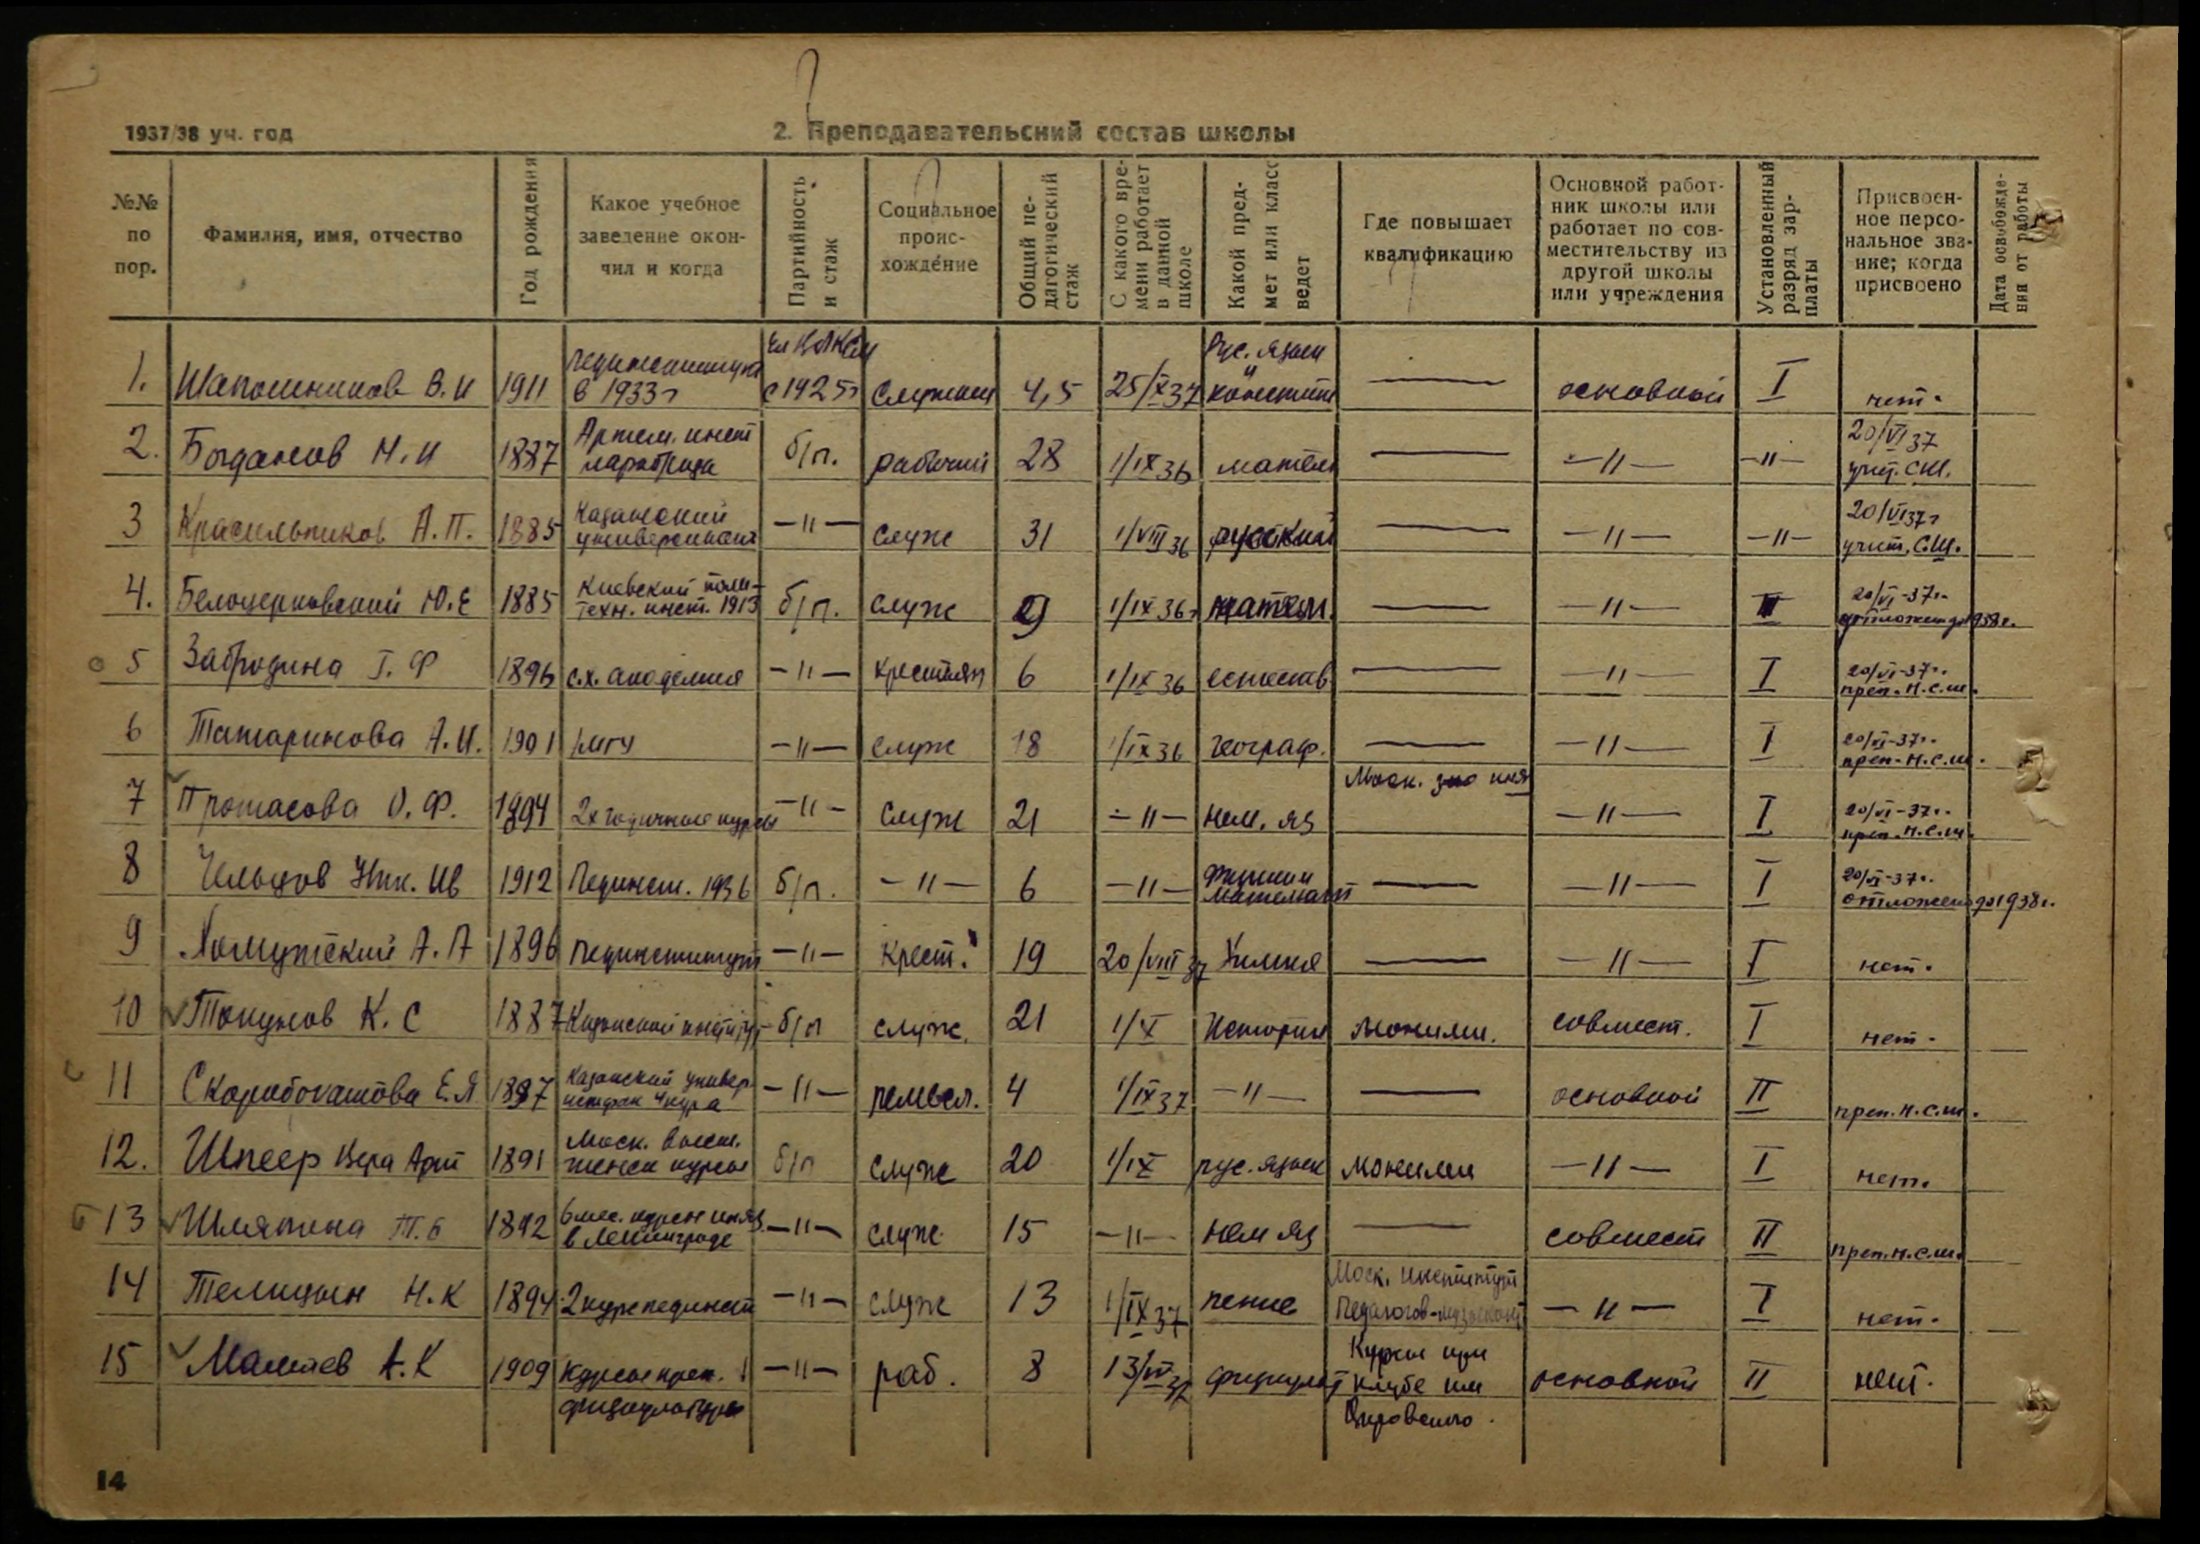 1937/38 уч. год
2. Преподавательский состав школы
№№ по пор.
Фамилия, имя, отчество
Год рождения
Какое учебное заведение окончил и когда
Партийность и стаж
Социальное происхождение
Общий педагогический стаж
С какого времени работает в данной школе
Какой предмет или класс ведет
Где повышает квалификацию
Основной работник школы или работает по совместительству из другой школы или учреждения
Установленный разряд зарплаты
Присвоенное персональное звание; когда присвоено
Дата освобождения от работы
1. Шапошников В. И 1911 пединститут в 1933г чл ВЛКСМ с 1925г служащ 4,5 25/X 37 Рус. язык и конститу — основной I нет.
2. Богданов Н. И 1887 инст б/п. рабочий 28 1/IX 36 матем — -"- -"- 20/VI 37 учит. С.Ш.
3 Красильников А. П. 1885 Казанский университет -"- служ 31 1/VIII 36 русский — -"- -"- 20/VI 37г учит. С.Ш.
4. Белоцерковский Ю. Е 1885 Киевский поли-техн. инст. 1913 б/п. служ 9 1/IX 36г матем. — -"- II 20/VI-37г. отложен до 1938г.
5 Забродина Т. Ф 1896 с.х. академия -"- крестьян 6 1/IX 36 естеств — -"- I 20/VI-37г. преп. Н.С.Ш.
6 Татаринова А. И. 1901 1 МГУ -"- служ 18 1/IX 36 географ. — -"- I 20/VI-37г. преп. Н.С.Ш.
7 Протасова О. Ф. 1894 2х годичные курсы -"- служ 21 -"- нем. яз Моск. иняз -"- I 20/VI-37г. преп. Н.С.Ш.
8 Чельцов Ник. Ив 1912 Пединст. 1936 б/п. -"- 6 -"- физики математ — -"- I 20/VI-37г. отложено до 1938г.
9 Хомутский А. А 1896 Пединститут -"- крест. 19 20/VIII 37 Химия — -"- I нет.
10 Токунов К. С 1887 институт б/п служ. 21 1/X История МОНИМИ. совмест. I нет.
11 Скоробогатова Е. Я 1897 Казанский универ. истфак 4 кура -"- ремесл. 4 1/IX 37 -"- — основной II преп. Н.С.Ш.
12. Шпеер Вера 1891 Моск. высш. женск курсы б/п служ 20 1/IX рус. язык МОНИМИ -"- I нет.
13 Шляпина Т. Б 1892 6 мес. курсы иняз. в Ленинграде -"- служ 15 -"- нем яз — совмест II преп. Н.С.Ш.
14 Телицын Н. К 1894 2 курс пединст -"- служ 13 1/IX 37 пение Моск. институт педагогов- -"- I нет.
15 Мамаев А. К 1909 Курсы преп. физкультуры -"- раб. 8 физкульт Курсы при клубе им основной II нет.
14